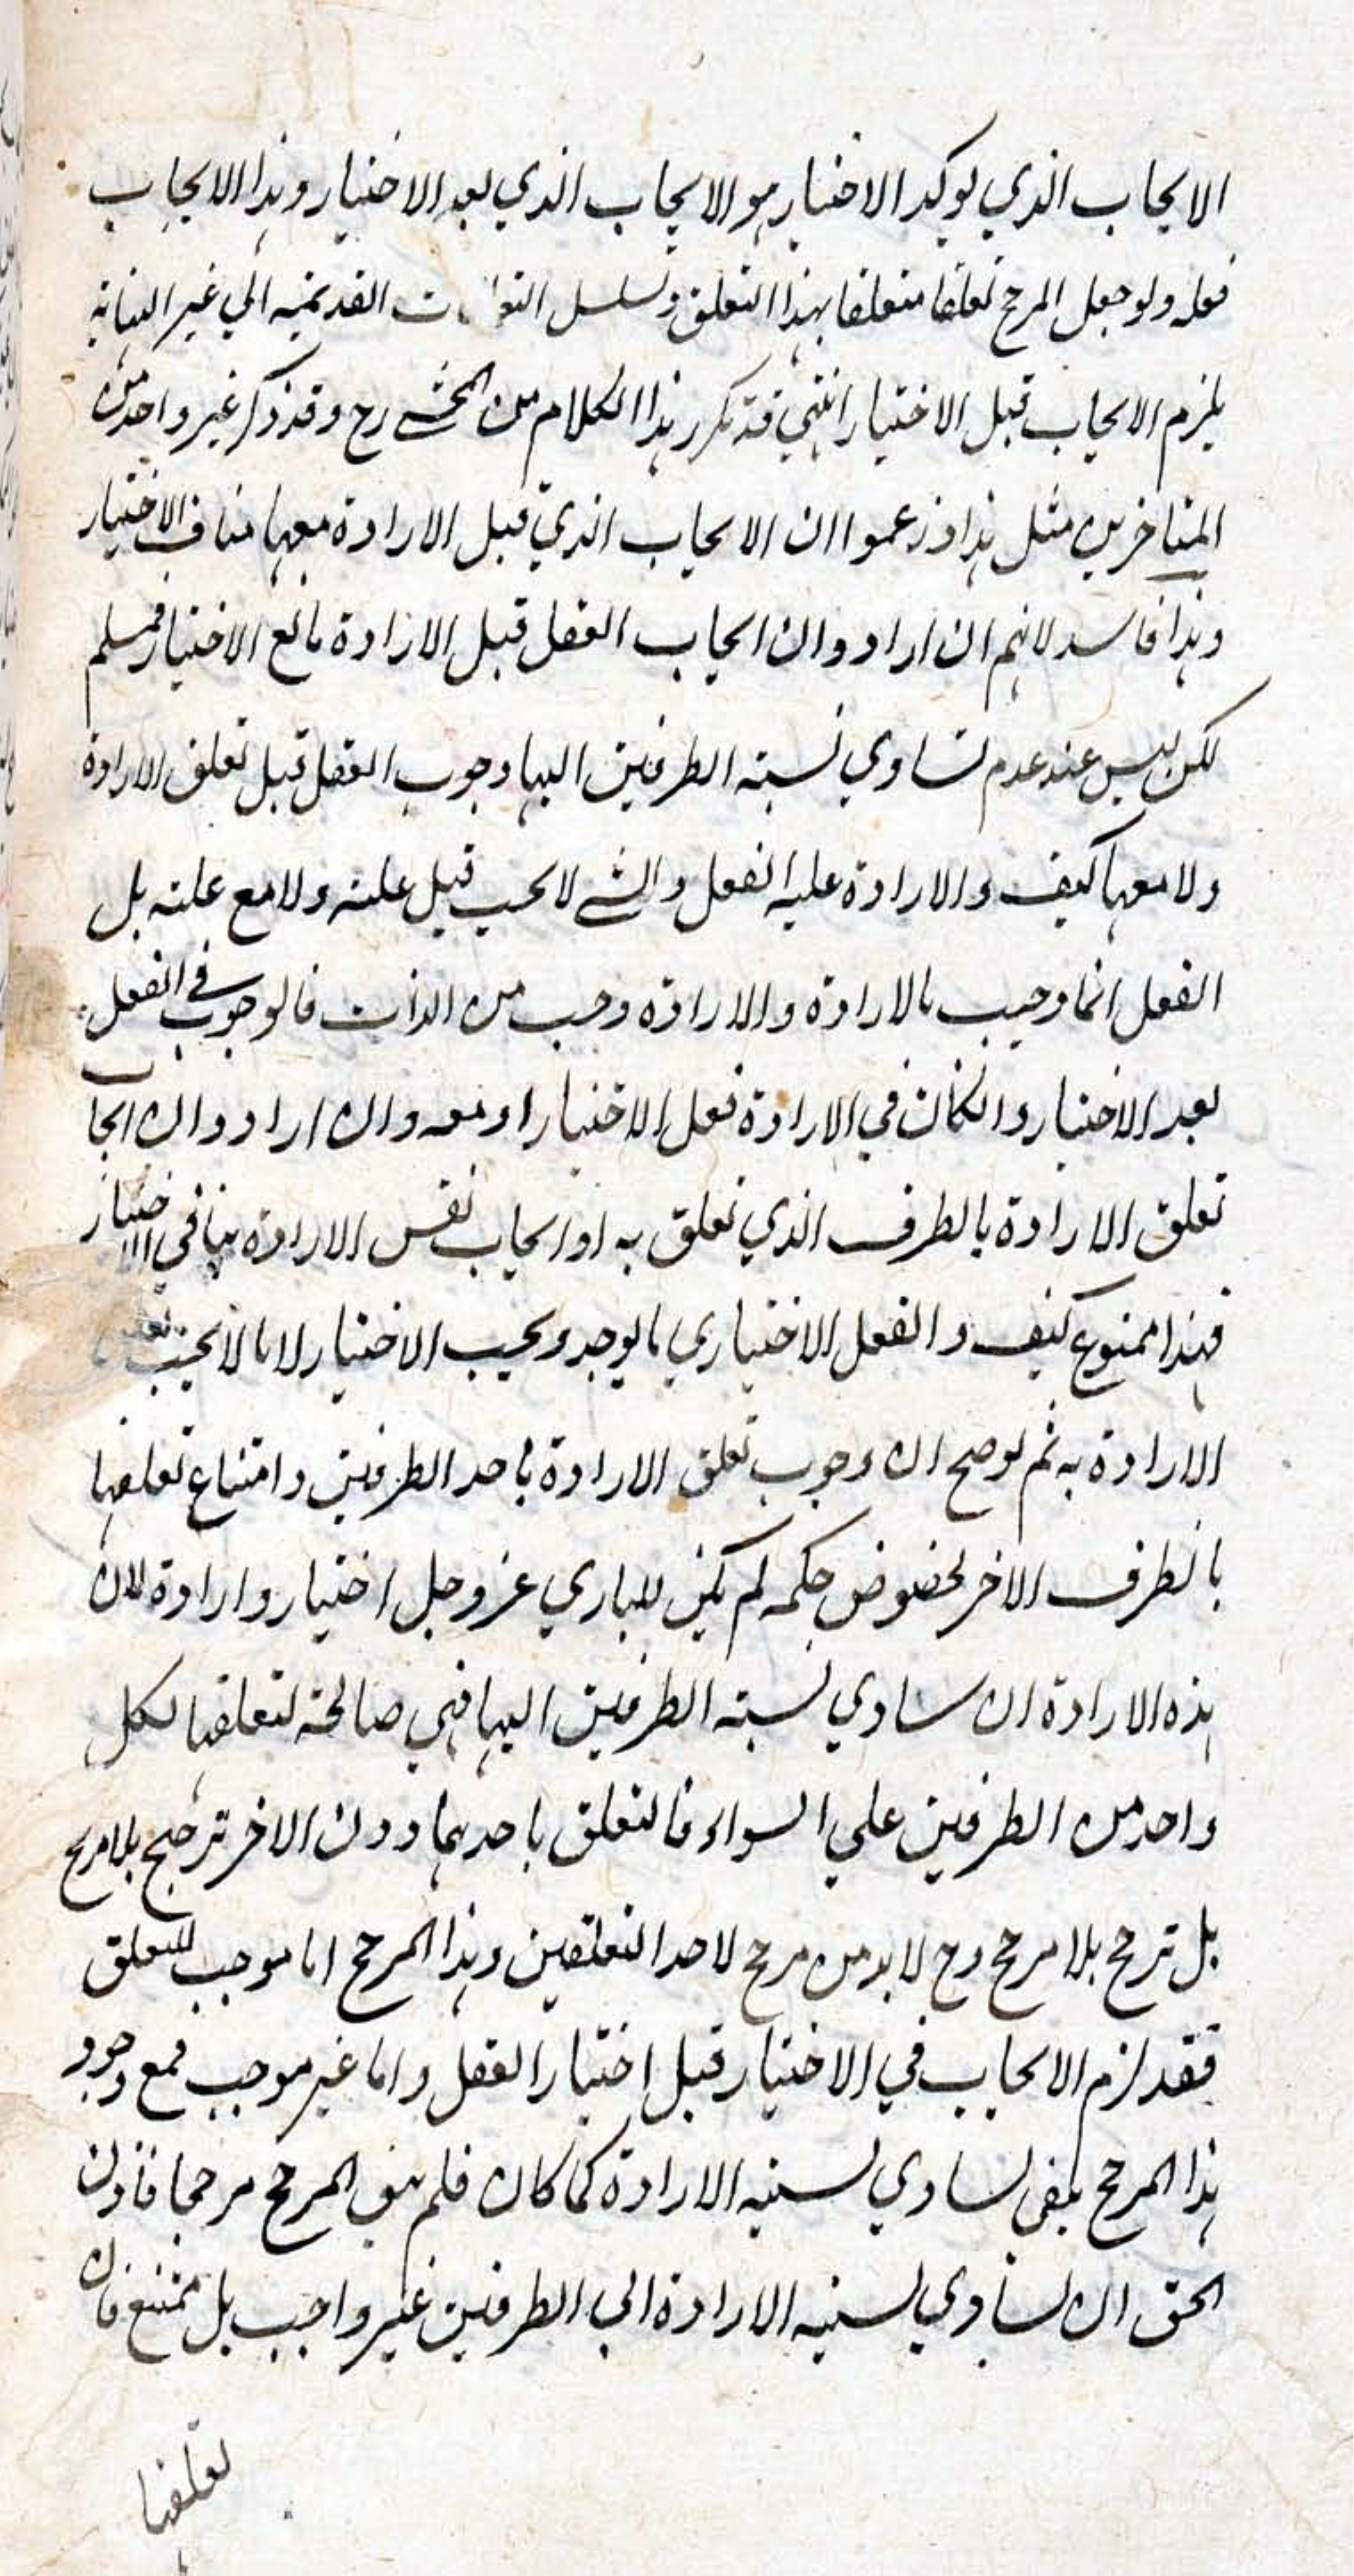 الايجاب الذي يوكد الاختيار هو الايجاب الذي بعد الاختيار وهذا الايجاب
فعله ولو جعل المرجح تعلقا متعلقا بهذا التعلق وتسلسل القديمة الي غير النهاية
يلزم الايجاب قبل الاختيار انتهي قد تكرر هذا الكلام من المحشے رح وقد ذكر غير واحد من
المتاخرين مثل هذا وزعموا ان الايجاب الذي قبل الارادة معها مناف الاختيار
وهذا فاسد لانهم ان ارادوا ان ايجاب الفعل قبل الارادة مانع الاختيار فمسلم
لكن ليس عند عدم تساوي نسبة الطرفين اليها وجوب الفعل قبل تعلق الارادة
ولا معها كيف والارادة علية الفعل والشے لا يجب قبل علته ولا مع علته بل
الفعل انما وجب بالارادة والارادة وجب من الذات فالوجوب في الفعل
بعد الاختيار وانكان في الارادة فعل الاختيار او معه وان ارادوا ان ايجاب
تعلق الارادة بالطرف الذي تعلق به او ايجاب نفس الارادة ينافي الاختيار
فهذا ممنوع كيف والفعل الاختياري ما يوجد ويجب الاختيار لا ما لا يجب تعلق
الارادة به ثم لو صح ان وجوب تعلق الارادة باحد الطرفين وامتناع تعلقها
بالطرف الاخر لخصوص حكمه لم يكن للباري عز وجل اختيار وارادة لان
هذه الارادة ان ساوي نسبة الطرفين اليها فهي صالحة لتعلقها لكل
واحد من الطرفين علي السواء فالتعلق باحدهما دون الاخر ترجيح بلا مرجح
بل ترجح بلا مرجح وح لا بد من مرجح لاحد التعلقين وهذا المرجح اما موجب للتعلق
فقد لزم الايجاب في الاختيار قبل اختيار الفعل واما غير موجب فمع وجود
هذا المرجح بقي تساوي نسبة الارادة كما كان فلم يبق المرجح مرجحا فاذن
الحق ان تساوي نسبة الارادة الي الطرفين غير واجب بل ممتنع فان
تعلقها